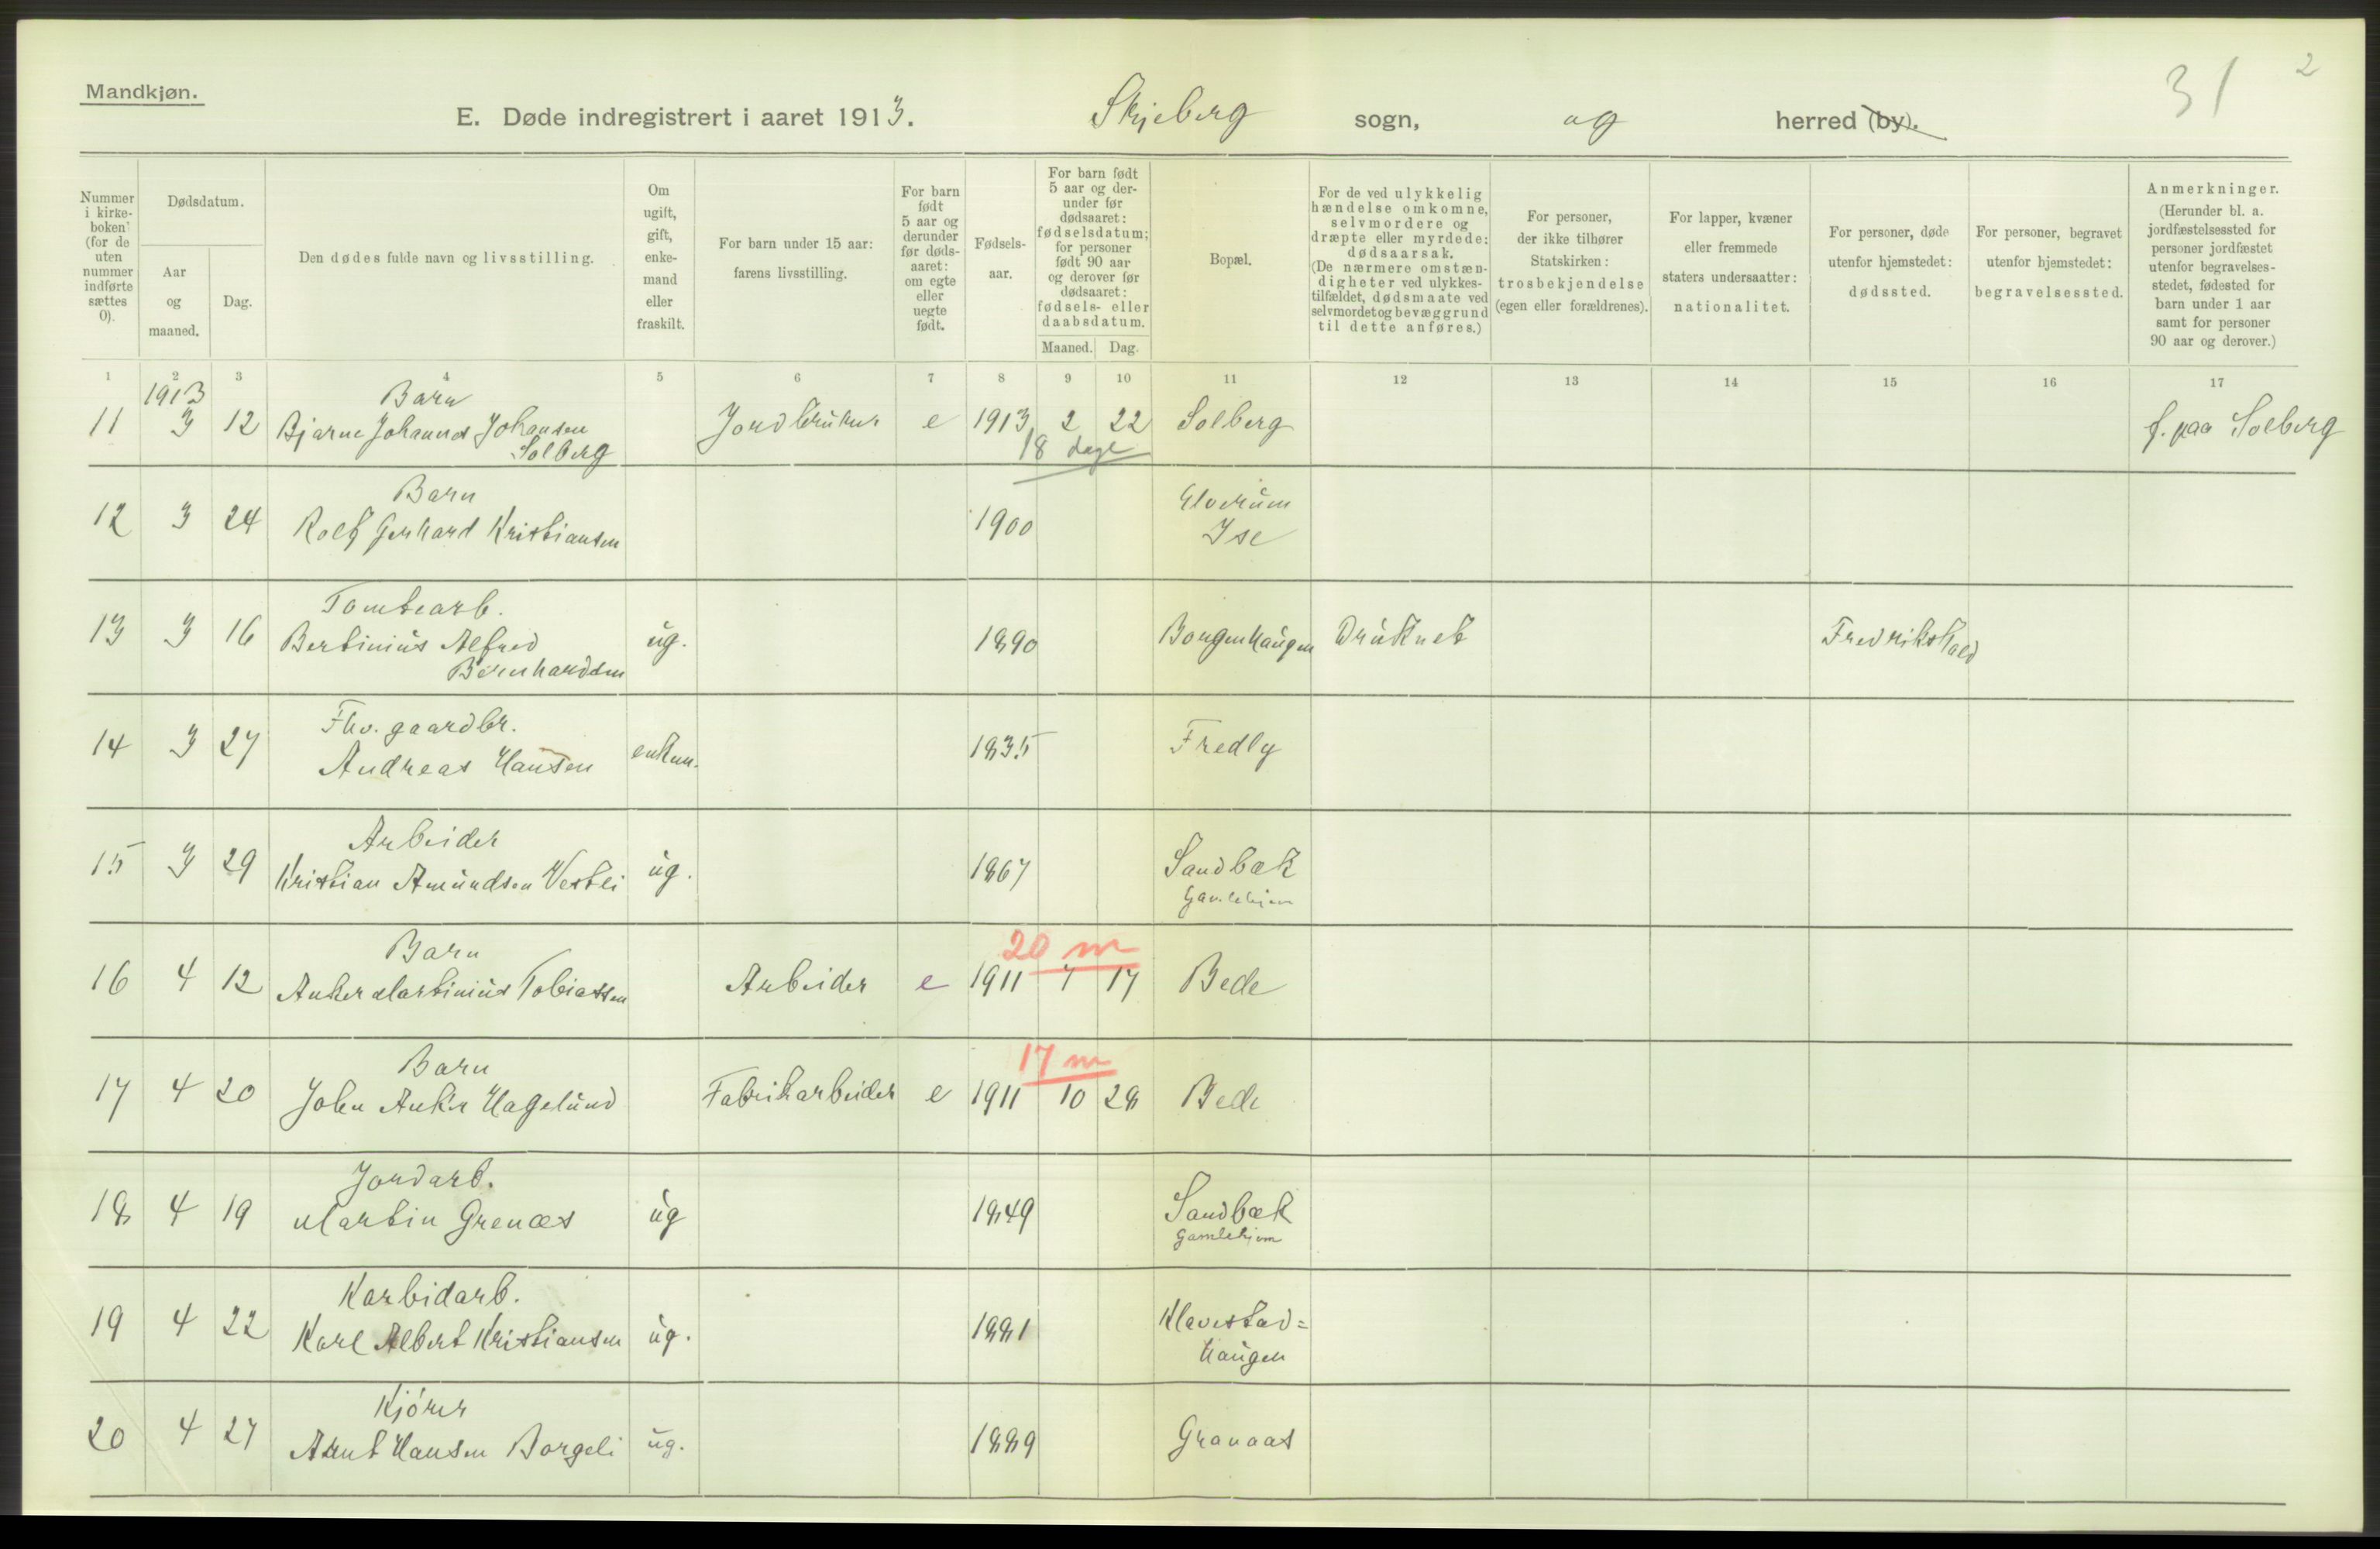 Mandkjøn.
31
2
E. Døde indregistrert i aaret 1913. Skjeberg sogn, og herred (by).
Nummer i kirkeboken (for de uten nummer indførte sættes 0).
Dødsdatum.
Aar og maaned.
Dag.
Den dødes fulde navn og livsstilling.
Om ugift, gift, enkemand eller fraskilt.
For barn under 15 aar: farens livsstilling.
For barn født 5 aar og derunder før dødsaaret: om egte eller uegte født.
Fødselsaar.
For barn født 5 aar og derunder før dødsaaret: fødselsdatum; for personer født 90 aar og derover før dødsaaret: fødsels- eller daabsdatum.
Maaned. Dag.
Bopæl.
For de ved ulykkelig hændelse omkomne, selvmordere og dræpte eller myrdede: dødsaarsak. (De nærmere omstændigheter ved ulykkestilfældet, dødsmaate ved selvmordet og bevæggrund til dette anføres.)
For personer, der ikke tilhører Statskirken: trosbekjendelse (egen eller forældrenes).
For lapper, kvæner eller fremmede staters undersaatter: nationalitet.
For personer, døde utenfor hjemstedet: dødssted.
For personer, begravet utenfor hjemstedet: begravelsessted.
Anmerkninger. (Herunder bl. a. jordfæstelsessted for personer jordfæstet utenfor begravelsesstedet, fødested for barn under 1 aar samt for personer 90 aar og derover.)
1 2 3 4 5 6 7 8 9 10 11 12 13 14 15 16 17
1913 Barn
11 3 12 Bjarne Johannes Johansen Jordbruker e 1913 2 22 Solberg f. paa Solberg
Solberg 18 dage
Barn Elverum
12 3 24 Rolf Gerhard Kristiansen 1900 Ise
Tomtearb.
13 3 16 Bertinius Alfred ug. 1890 Borgenhaugen Druknet Fredrikshald
Bernhardsen
Fhv. gaardbr.
14 3 27 Andreas Hansen enkem. 1835 Fredly
Arbeider
15 3 29 Kristian Amundsen Vestli ug. 1867 Sandbæk
Gamlehjem
Barn 20 m
16 4 12 Anker Martinius Tobiassen Arbeider e 1911 7 17 Bede
Barn 17 m
17 4 20 John Anker Hagelund Fabrikarbeider e 1911 10 28 Bede
Jordarb.
18 4 19 Martin Grenæs ug 1849 Sandbæk
Gamlehjem
Karbidarb.
19 4 22 Karl Albert Kristiansen ug. 1881 Klavestad=
haugen
Kjörer
20 4 27 Arnt Hansen Borgeli ug. 1889 Granaas